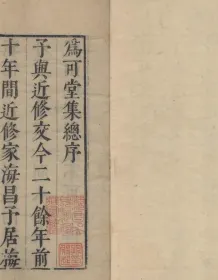 為可堂集總序
予與近修交今二十餘年前
十年間近修家海昌予居海